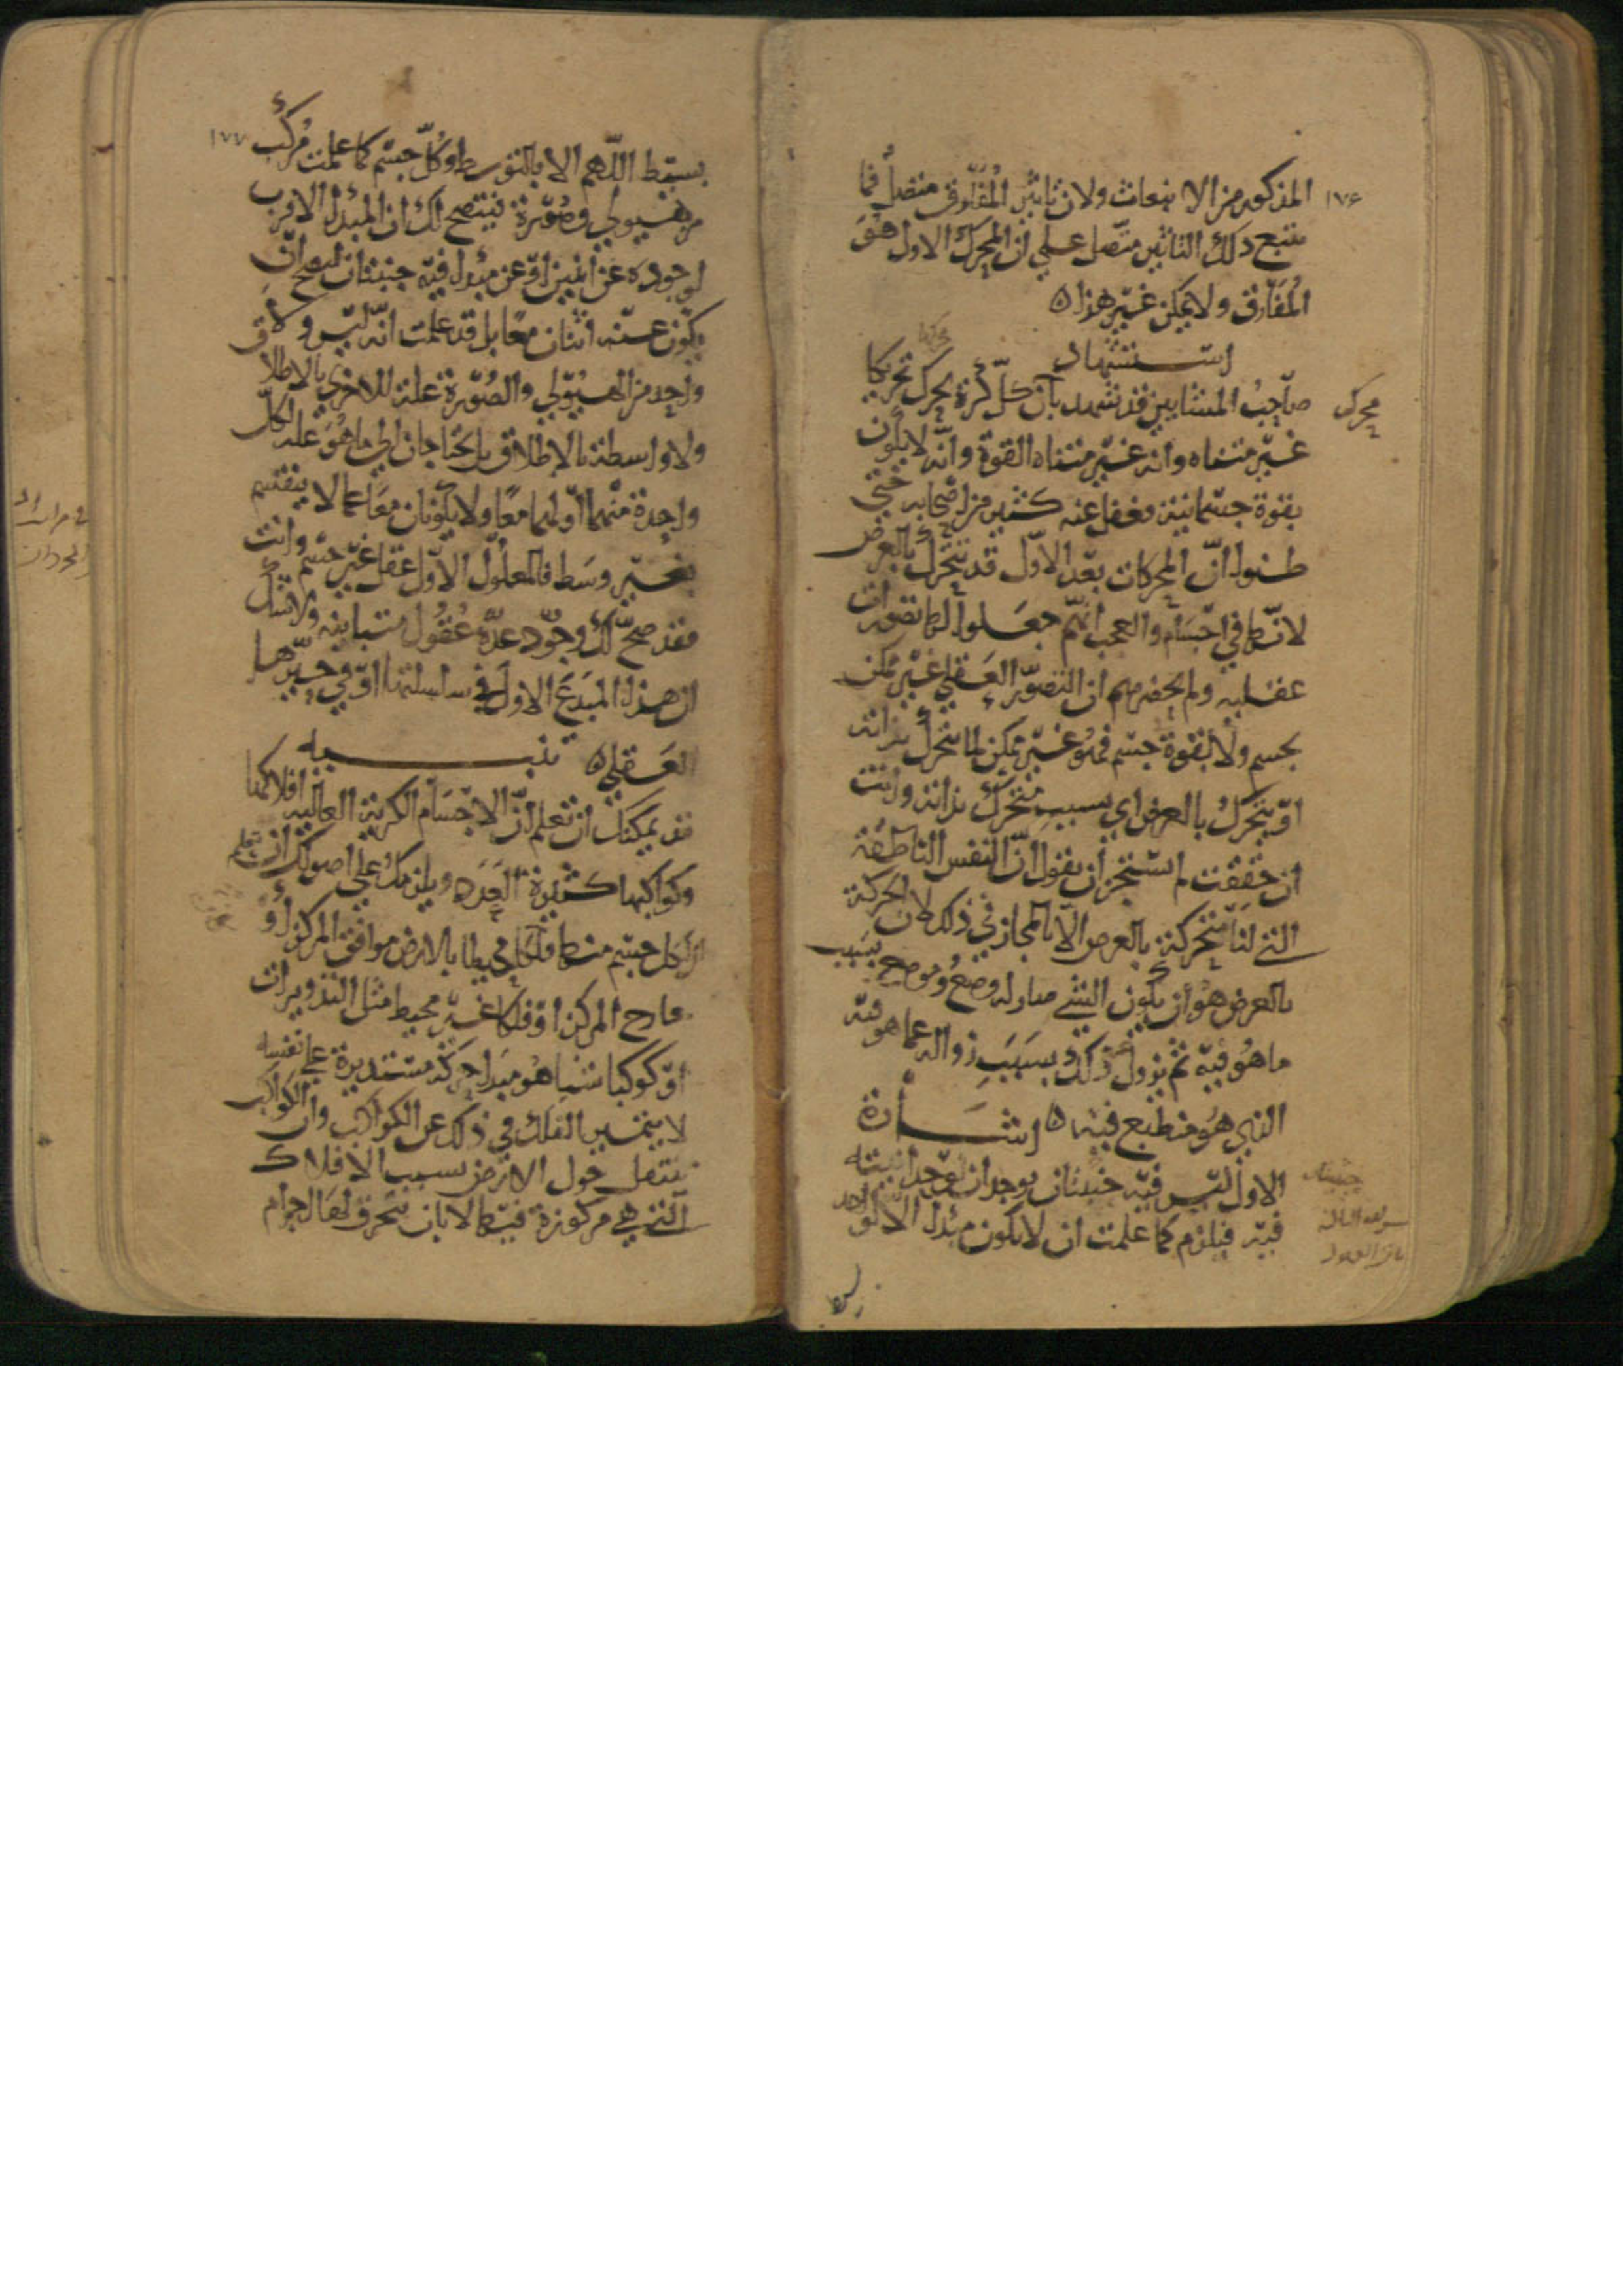 ١٧۶
المذكور من الانبعاث ولان تاثير المفارق متصل فما
يتبع ذلك التاثير متصل على ان المحرك الاول هو
المفارق ولا يمكن غير هذا ه
استشهاد
صاحب المشايين قد شهد بان كل كرة يحرك تحريكا
محرك
غير متناه وانه غير متناه القوة وانه لا يكون
بقوة جسمانية فغفل عنه كثير من اصحابه حتى
ظنوا ان المحركات بعد الاول قد تتحرك بالعرض
لانها في اجسام والعجب انهم جعلوا لها تصورات
عقلية ولم يحضرهم ان التصور العقلي غير ممكن
لجسم ولا لقوة جسم فهو غير ممكن لما يتحرك بذاته
او يتحرك بالعرض اي بسبب متحرك بذاته وانت
ان حققت لم تستجز ان يقول ان النفس الناطقة
التي لنا متحركة بالعرض الا بالمجاز في ذلك لان الحركة
بالعرض هو ان يكون الشي صار له وضع وموضع بسبب
ما هو فيه ثم يزول ذلك بسبب زواله عما هو فيه
الذي هو منطبع فيه ه اشارة
الاول ليس فيه حيثيتان لوحدانيته
فيه فيلزم كما علمت ان لا يكون مبدا الا لواحد
١٧٧
بسيط اللهم الا بالتوسط وكل جسم كما علمت مركب
من هيولى وصورة فيتضح لك ان المبدا الاقرب
لوجوده عن اثنين او عن مبدا فيه حيثيتان ليصح ان
يكون عنه اثنان معا بل قد علمت انه ليس ولا
واحد من الهيولى والصورة علة للاخرى بالاطلاق
ولا واسطة بالاطلاق بل يحتاجان الى ما هو علة لكل
واحدة منهما او لهما معا ولا يكونان معا عما لا ينقسم
بغير وسط فالمعلول الاول عقل غير جسم وانت
فقد صح لك وجود عدة عقول متباينه ولا شك
ان هذا المبدع الاول في سلسلتها او في حيزها
العقلي ه تنبيه
قد يمكنك ان تعلم ان الاجسام الكرية العالية افلاكها
وكواكبها كثيرة العدد ويلزمك على اصولك ان تعلم
ان لكل جسم منها فلكا محيطا بالارض موافق المركز او
خارج المركز او فلكا غير محيط مثل التدويرات
او كوكبا شيا هو مبدا حركة مستديرة على نفسه
لا يتميز الفلك في ذلك عن الكواكب وان الكواكب
تنتقل حول الارض بسبب الافلاك
التي هي مركوزة فيها لا بان تنخرق لها اجرام